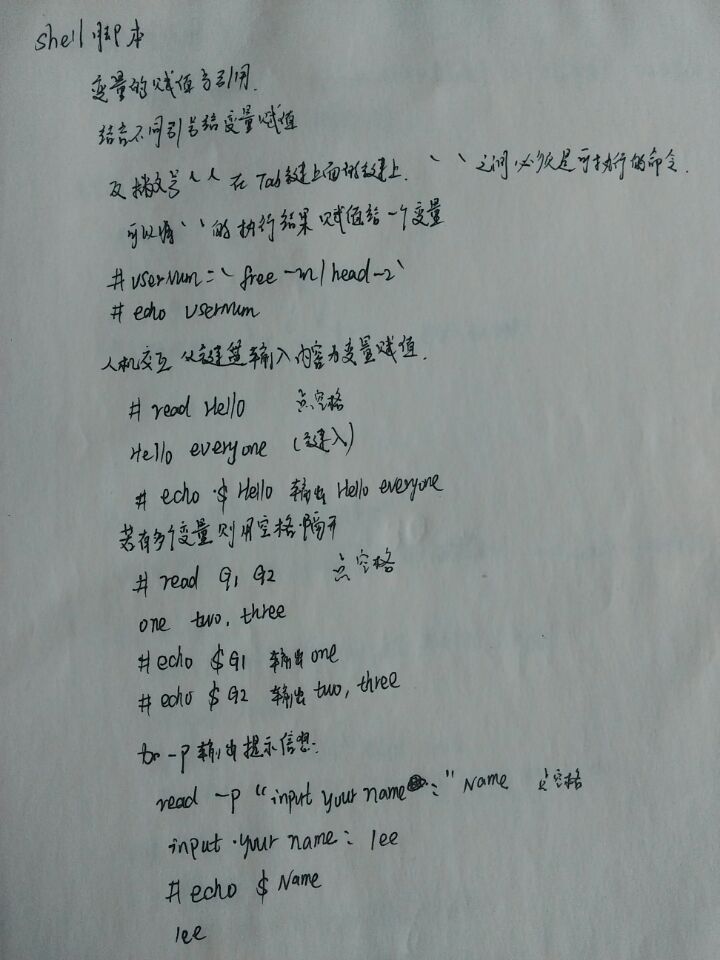 shell 脚本
变量的赋值与引用.
结合不同引号给变量赋值
反撇号 ` ` 在 Tab 键上面的键上. ` ` 之间必须是可执行的命令.
可以将 ` ` 的执行结果赋值给一个变量
# userNum = ` free -m | head -2 `
# echo userNum
人机交互 从键盘输入内容为变量赋值.
# read Hello 点空格
Hello everyone (键入)
# echo $ Hello 输出 Hello everyone
若有多个变量则用空格隔开
# read G1 G2 点空格
one two, three
# echo $G1 输出 one
# echo $G2 输出 two, three
加 -p 输出提示信息:
read -p "input your name : " Name 点空格
input your name : lee
# echo $ Name
lee